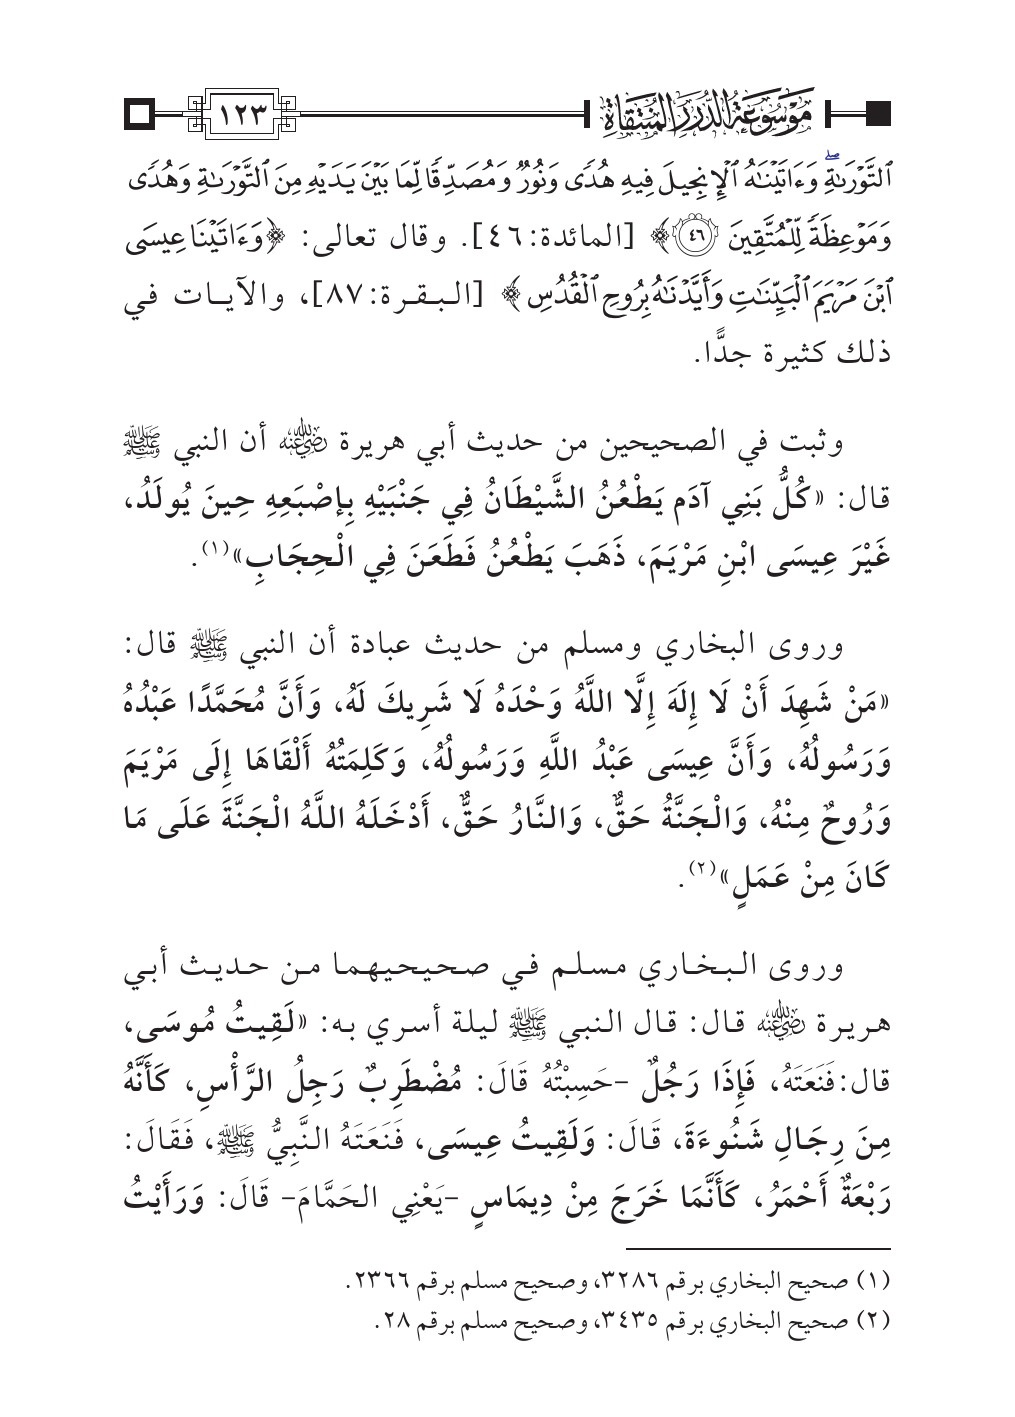 موسوعة الدرر المنتقاة ١٢٣
ٱلتَّوْرَىٰةِۖ وَءَاتَيْنَٰهُ ٱلْإِنجِيلَ فِيهِ هُدًى وَنُورٌ وَمُصَدِّقًا لِّمَا بَيْنَ يَدَيْهِ مِنَ ٱلتَّوْرَىٰةِ وَهُدًى
وَمَوْعِظَةً لِّلْمُتَّقِينَ ٤٦﴾ [المائدة: ٤٦]. وقال تعالى: ﴿وَءَاتَيْنَا عِيسَى
ٱبْنَ مَرْيَمَ ٱلْبَيِّنَٰتِ وَأَيَّدْنَٰهُ بِرُوحِ ٱلْقُدُسِ﴾ [البقرة: ٨٧]، والآيات في
ذلك كثيرة جدًّا.
وثبت في الصحيحين من حديث أبي هريرة رضي الله عنه أن النبي ﷺ
قال: «كُلُّ بَنِي آدَم يَطْعُنُ الشَّيْطَانُ فِي جَنْبَيْهِ بِإِصْبَعِهِ حِينَ يُولَدُ،
غَيْرَ عِيسَى ابْنِ مَرْيَمَ، ذَهَبَ يَطْعُنُ فَطَعَنَ فِي الْحِجَابِ»(١).
وروى البخاري ومسلم من حديث عبادة أن النبي ﷺ قال:
«مَنْ شَهِدَ أَنْ لَا إِلَهَ إِلَّا اللَّهُ وَحْدَهُ لَا شَرِيكَ لَهُ، وَأَنَّ مُحَمَّدًا عَبْدُهُ
وَرَسُولُهُ، وَأَنَّ عِيسَى عَبْدُ اللَّهِ وَرَسُولُهُ، وَكَلِمَتُهُ أَلْقَاهَا إِلَى مَرْيَمَ
وَرُوحٌ مِنْهُ، وَالْجَنَّةُ حَقٌّ، وَالنَّارُ حَقٌّ، أَدْخَلَهُ اللَّهُ الْجَنَّةَ عَلَى مَا
كَانَ مِنْ عَمَلٍ»(٢).
وروى البخاري مسلم في صحيحيهما من حديث أبي
هريرة رضي الله عنه قال: قال النبي ﷺ ليلة أسري به: «لَقِيتُ مُوسَى،
قال: فَنَعَتَهُ، فَإِذَا رَجُلٌ –حَسِبْتُهُ قَالَ: مُضْطَرِبٌ رَجِلُ الرَّأْسِ، كَأَنَّهُ
مِنَ رِجَالِ شَنُوءَةَ، قَالَ: وَلَقِيتُ عِيسَى، فَنَعَتَهُ النَّبِيُّ ﷺ، فَقَالَ:
رَبْعَةٌ أَحْمَرُ، كَأَنَّمَا خَرَجَ مِنْ دِيمَاسٍ –يَعْنِي الحَمَّامَ– قَالَ: وَرَأَيْتُ
(١) صحيح البخاري برقم ٣٢٨٦، وصحيح مسلم برقم ٢٣٦٦.
(٢) صحيح البخاري برقم ٣٤٣٥، وصحيح مسلم برقم ٢٨.